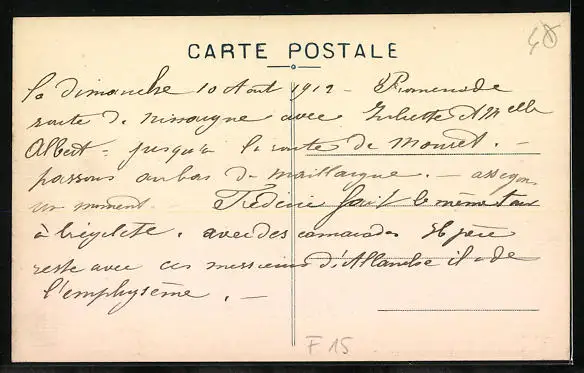 48
CARTE POSTALE
Le dimanche 10 Août 1912 - Promenade
route de avec Juliette et Melle
Albert - jusqu'à la route de . -
passons au bas de Maillargue. - asseyons
un moment. Frédéric fait le même tour
à bicyclette, avec des camarades et père
reste avec ces messieurs d'Allanche il a de
l'emphysème. -
F 15